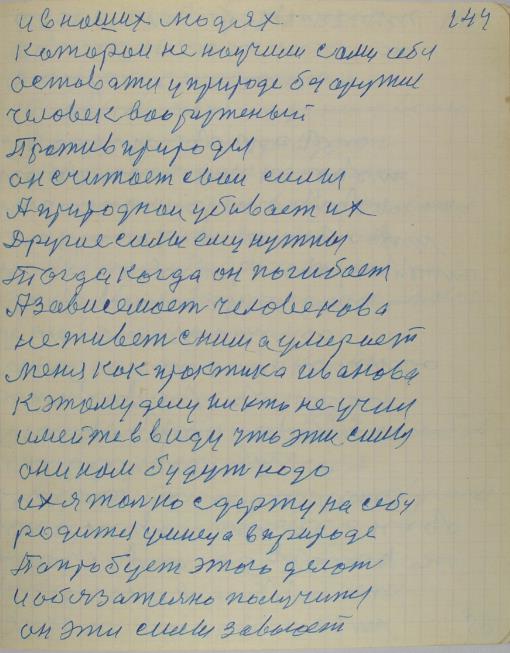 и в наших людях 144
которои не научили сами себя
оставати у природе без оружие
человек вооруженый
Против природы
он считает свои силы
А природнои убивает их
Другие силы ему нужны
Тогда, когда он погибает
А зависемает человекова
не живет с ним а умирает
меня как практика иванова
к этому делу никто не учил
имейте в виду что эти силы
они нам будут надо
их я толко сдержу на себу
родится умница в природе
Попробует этого делат
и обязателно получит
он эти силы завоюет